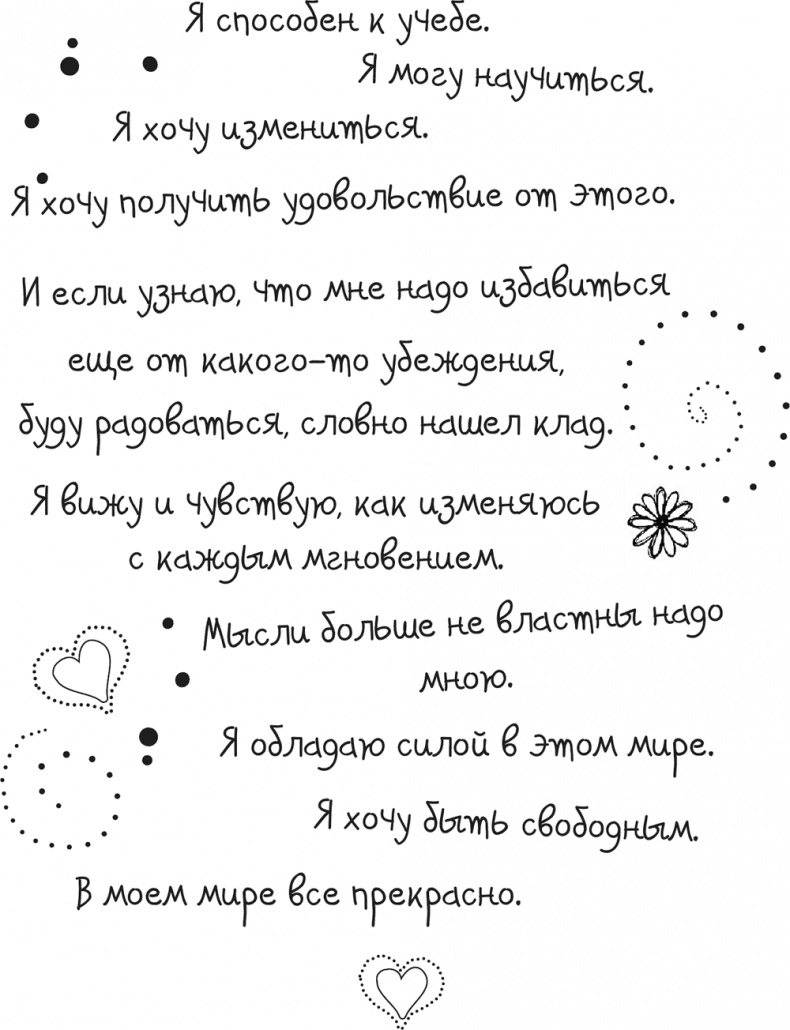 Я способен к учебе.
Я могу научиться.
Я хочу измениться.
Я хочу получить удовольствие от этого.
И если узнаю, что мне надо избавиться
еще от какого-то убеждения,
буду радоваться, словно нашел клад.
Я вижу и чувствую, как изменяюсь
с каждым мгновением.
Мысли больше не властны надо
мною.
Я обладаю силой в этом мире.
Я хочу быть свободным.
В моем мире все прекрасно.